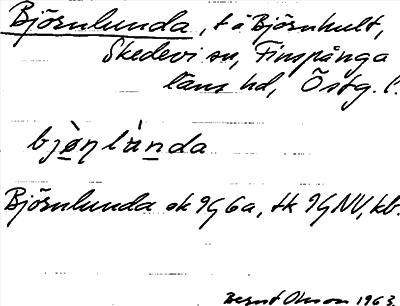 Björnlunda, t å Björnhult,
Skedevi sn, Finspånga
läns hd, Östg. l.
Björnlunda ek 9G6a, tk 9GNV, kb.
Bernt Olsson 1963